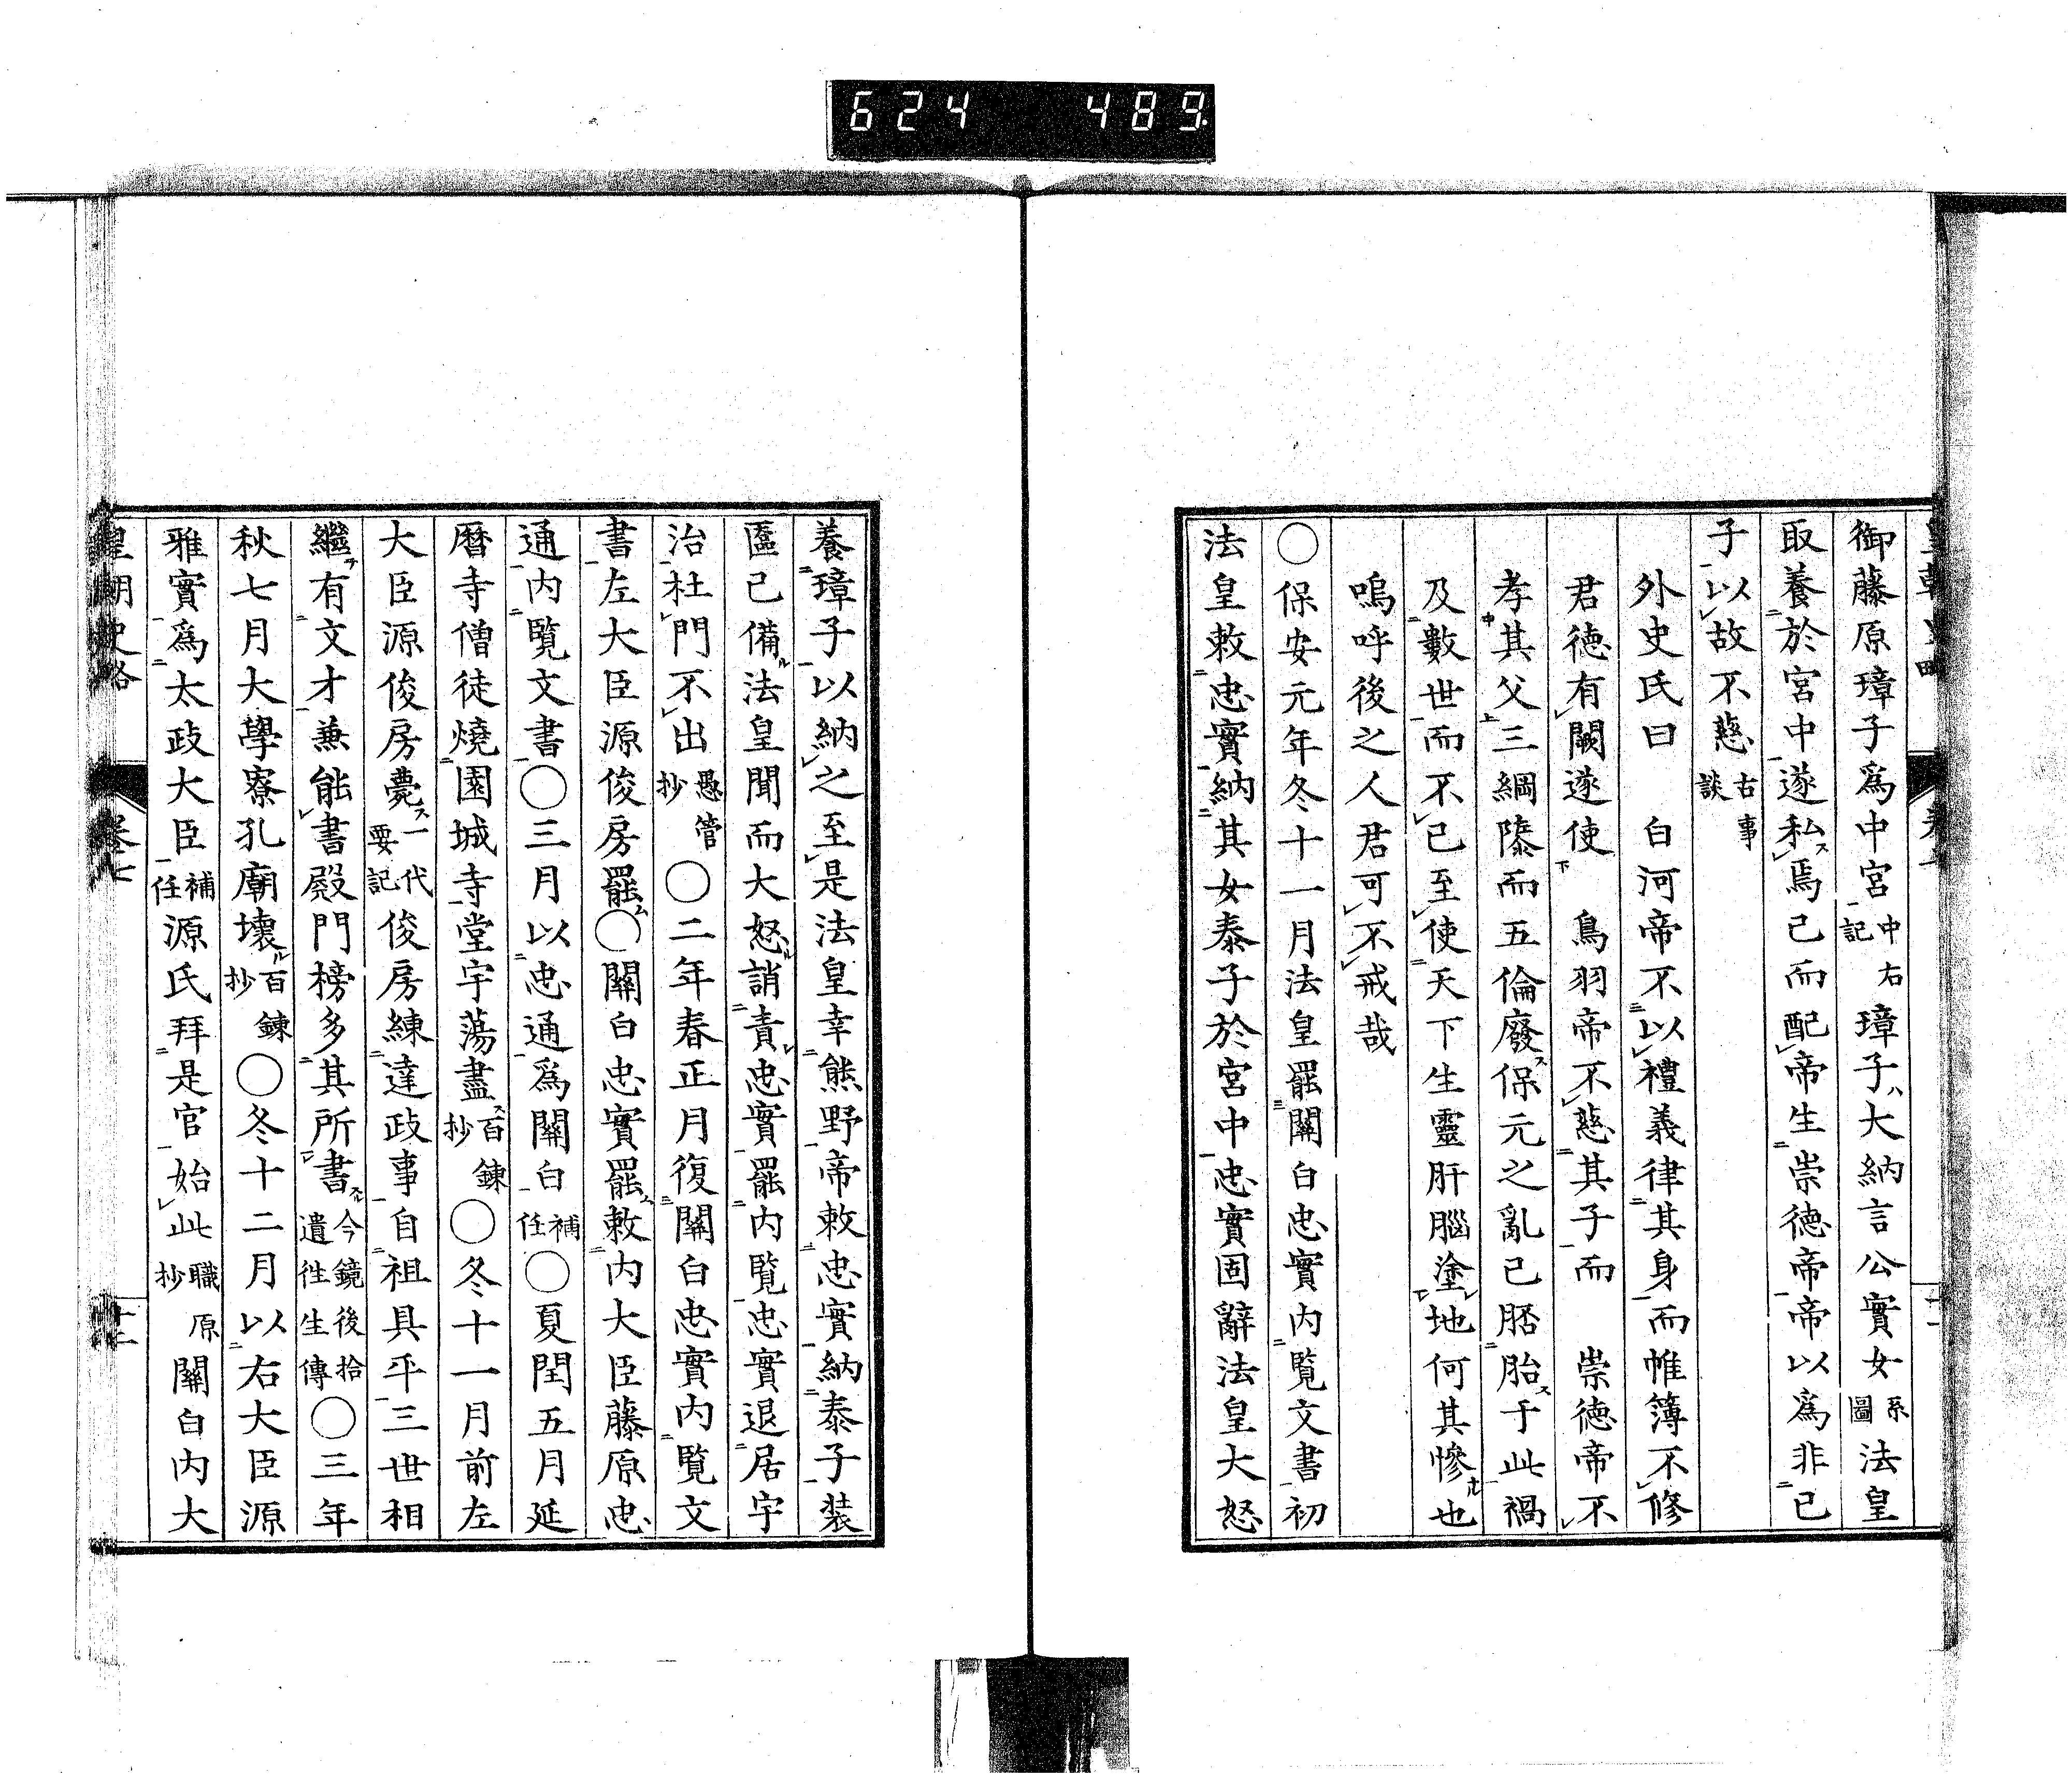 624 489
御藤原璋子爲中宮中右記璋子ハ大納言公實女系圖法皇
取養於宮中遂私ス焉已而配帝生崇徳帝帝以爲非已
子以故不慈古事談
外史氏曰 白河帝不以禮義律其身而帷簿不修
君徳有闕遂使 鳥羽帝不慈其子而 崇徳帝不
孝其父三綱隳而五倫廢ス保元之亂已胚胎ス于此禍
及數世而不已至使天下生靈肝腦塗地何其慘ナル也
嗚呼後之人君可不戒哉
〇保安元年冬十一月法皇罷關白忠實内覽文書初
法皇敕忠實納其女泰子於宮中忠實固辭法皇大怒
養璋子以納之至是法皇幸熊野帝敕忠實納泰子装
匳已備ル法皇聞而大怒ル誚責忠實罷内覽忠實退居宇
治杜門不出愚管抄〇二年春正月復關白忠實内覽文
書左大臣源俊房罷ム〇關白忠實罷ム敕内大臣藤原忠
通内覽文書〇三月以忠通爲關白補任〇夏閏五月延
暦寺僧徒燒園城寺堂宇蕩盡ス百錬抄〇冬十一月前左
大臣源俊房薨ス一代要記俊房練達政事自祖具平三世相
繼テ有文才兼能書殿門榜多其所書スル今鏡後拾遺往生傳〇三年
秋七月大學寮孔廟壞ル百錬抄〇冬十二月以右大臣源
雅實爲太政大臣補任源氏拜是官始此職原抄關白内大
皇朝史略 卷七 十二